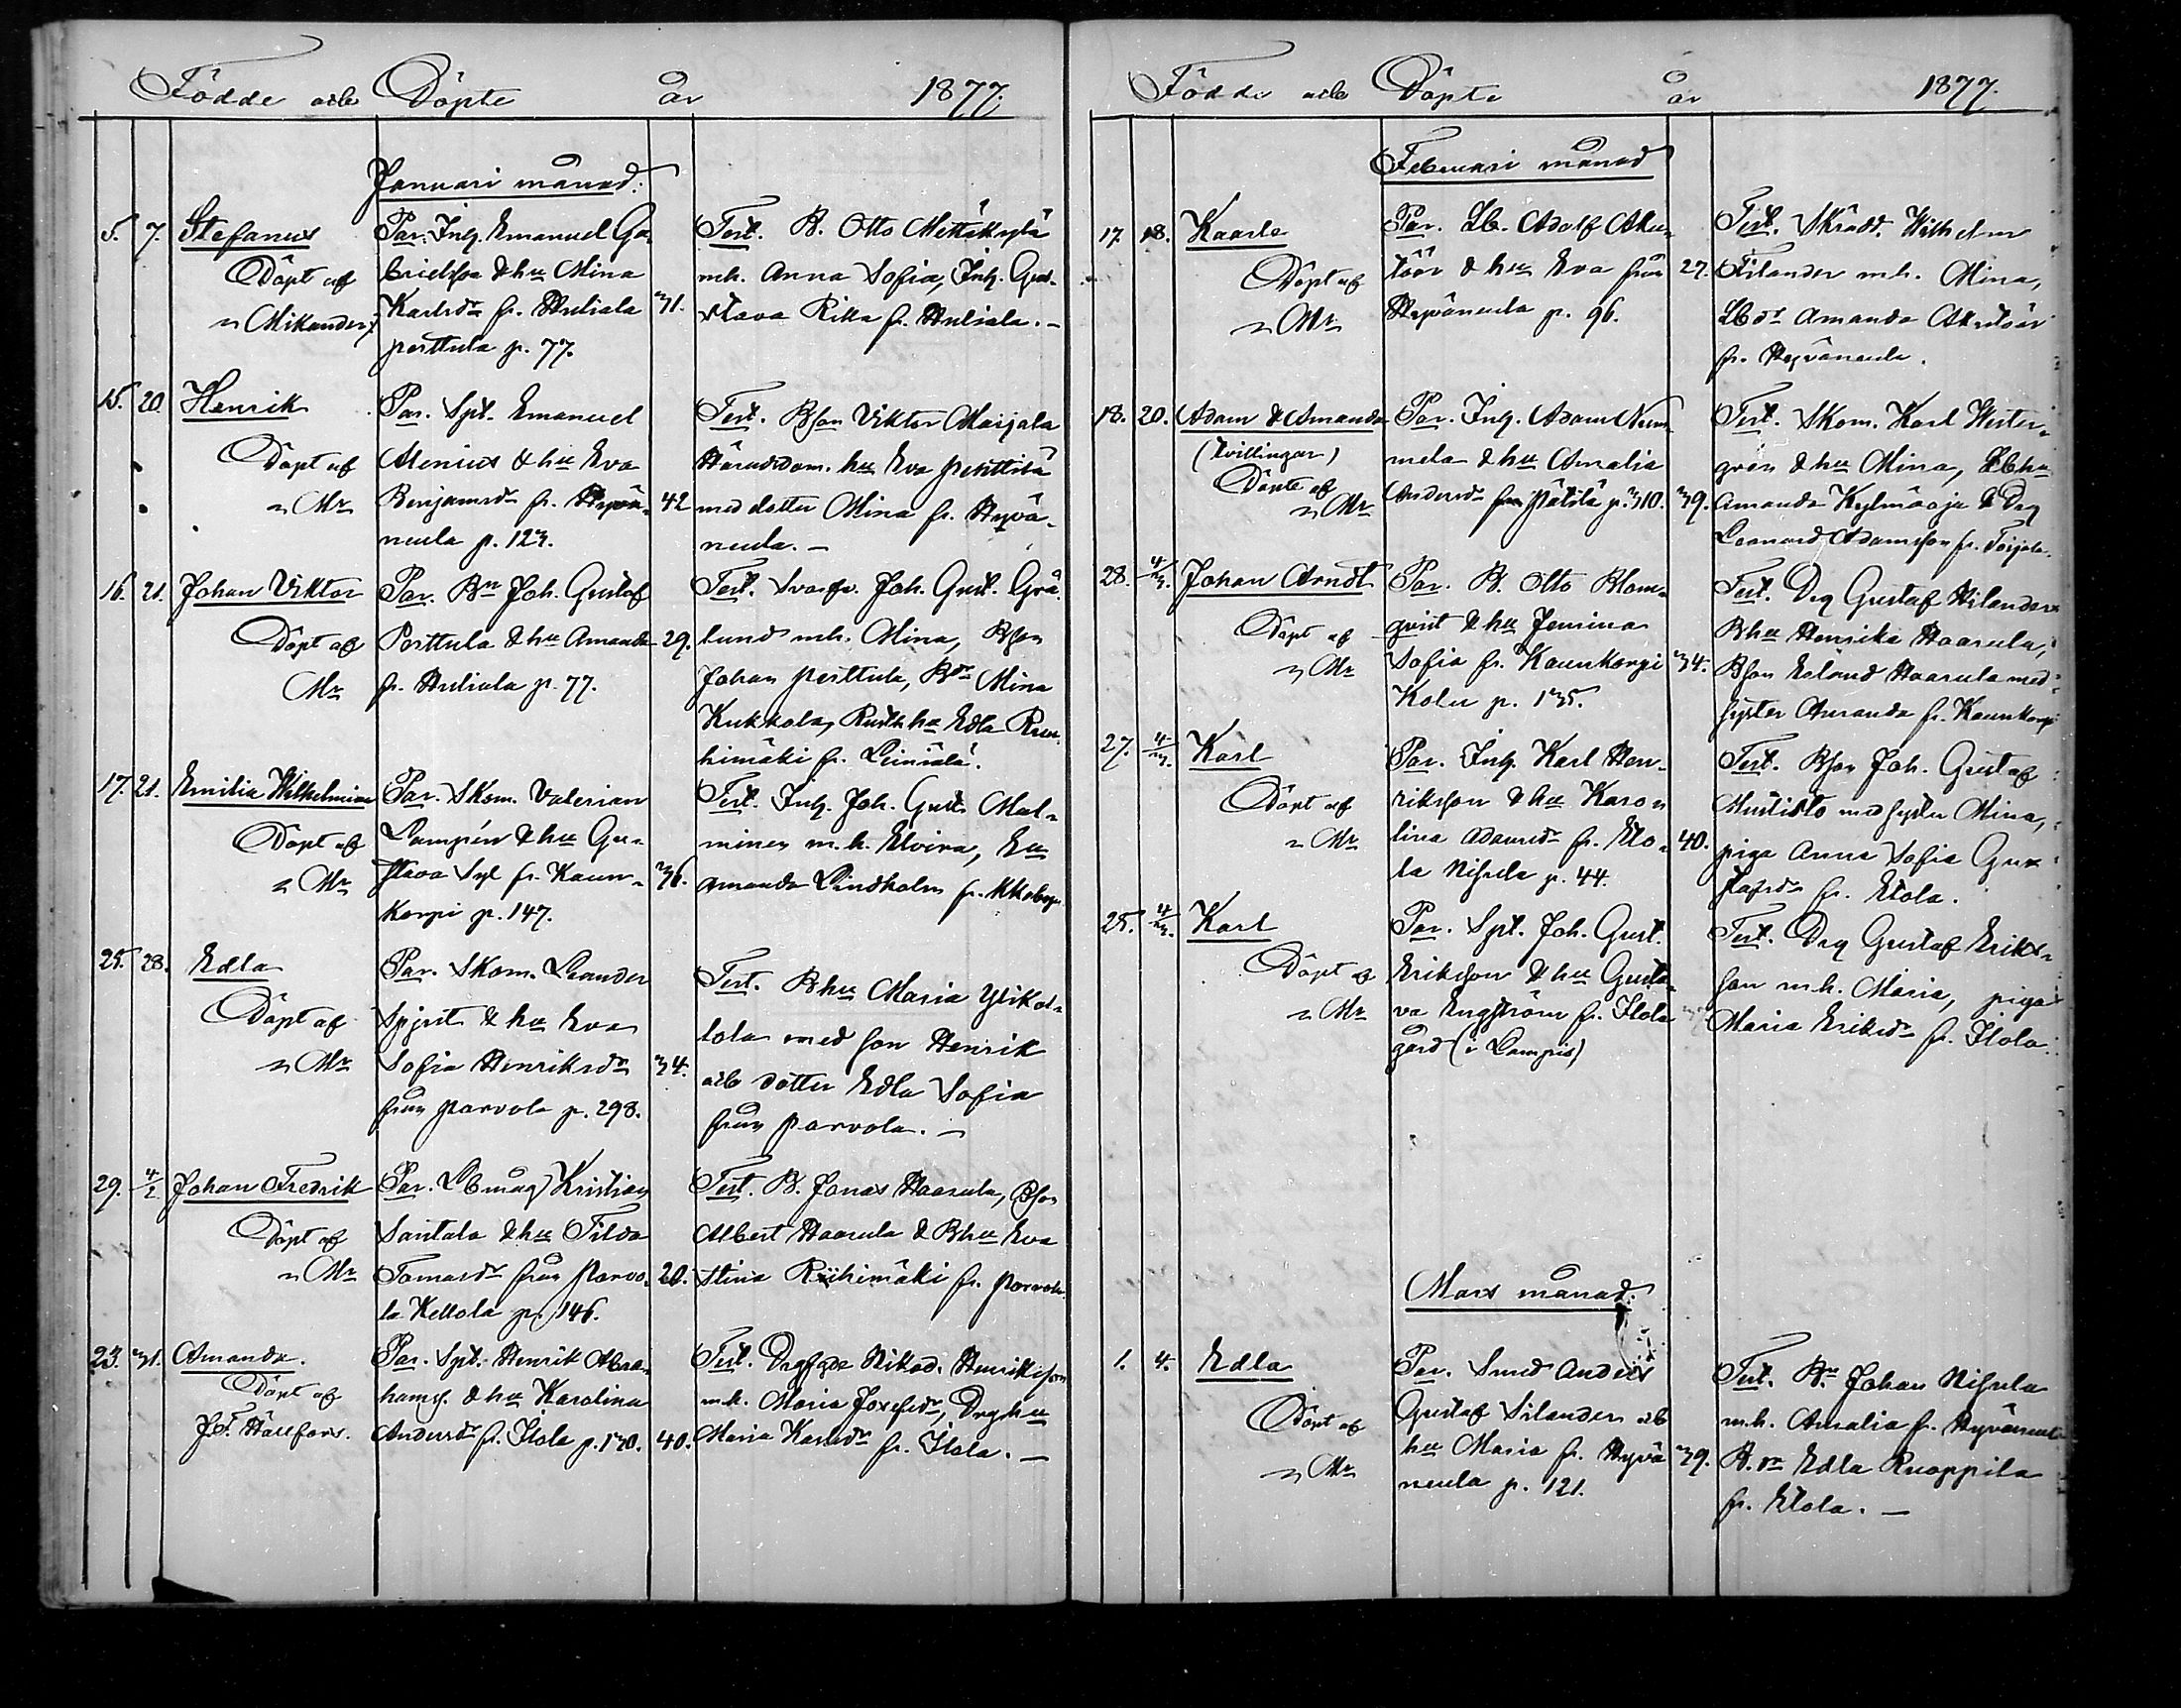 Födde och Döpte år 1877.
Januari månad.
5. 7. Stefanus
Döpt af
" Mikander
Par. Inh. Emanuel Ga-
brielsson & hu Mina
Karlsdr fr. Huliala
perttula p. 77.
31.
Test. B. Otto Mettäkylä
mh. Anna Sofia, Inh. Gus-
tava Rika fr. Huliala. —
15. 20. Henrik
Döpt af
" Mr
Par. Spt. Emanuel
Alenius & hu Eva
Benjamsdr fr. Hyvä-
neula p. 123.
42
Test. Bson Viktor Marjala
Häradsdom. hu Eva penttilä
med dotter Mina fr. Hyvä-
neula. —
16. 21. Johan Viktor
Döpt af
Mr
Par. Bn Joh. Gustaf
Perttula & hu Amanda
fr. Huliala p. 77.
29.
Test. Joh. Gust. Grä-
lund mh. Mina, Bson
Johan perttula, Bdr Mina
Kukkola, Rusth hu Edla
himäki fr. Leiniälä.
17. 21. Emilia Wilhelmina
Döpt af
" Mr
Par. Skom. Valerian
Lampén & hu Gu-
stava Syl fr. Kaun-
korpi p. 147.
36.
Test. Inh. Joh. Gust. Mal-
minen m.h. Elvira, Eu
Amanda Lindholm fr.
25. 28. Edla
Döpt af
" Mr
Par. Skom. Leander
Spjut & hu Eva
Sofia Henriksdr
från parvola p. 298.
34.
Test. Bhu Maria Ylikol-
lola med son Henrik
och dotter Edla Sofia
från parvola. —
29. 4/2 Johan Fredrik
Döpt af
" Mr
Par. Lbmåg Kristian
Santala & hu Tilda
Tomasdr från parvo-
la Kellola p. 146.
20.
Test. B. Jonas Haarula, Bson
Albert Haarula & Bhu Eva
Stina Riihimäki fr. parvola.
23. 31. Amanda.
Döpt af
J. F. Hällfors.
Par. Spt. Henrik Abra-
hams. & hu Karolina
Andersdr fr. Ilola p. 130.
40.
Test. Nikod. Henriksson
m.h. Maria Josefsdr, Drg hu
Maria Karlsdr fr. Ilola. —
Födde och Döpte år 1877.
Februari månad
17. 18. Kaarlo
Döpt af
" Mr
Par. Lb. Adolf Aku-
löör & hu Eva från
Hyväneula p. 96.
27.
Test. Skrädd. Wilhelm
Filander mh. Mina,
Lbdr Amanda
fr. Hyväneula.
18. 20. Adam & Amanda
(tvillingar)
Döpte af
" Mr
Par. Inh. Adam Num-
mela & hu Amalia
Andersdr från pätilä p. 310.
39.
Test. Skom. Karl Wester-
gren & hu Mina, Lbhu
Amanda Kylmäoja & Drg
Leonard Adamsson fr. Toijala.
28. 4/3. Johan Arndt
Döpt af
" Mr
Par. B. Otto Blom-
qvist & hu Jemina
Sofia fr. Kaunkorpi
Kolu p. 135.
34.
Test. Drg Gustaf Hilander
Bhu Henrika Haarula,
Bson Erland Haarula med
syster Amanda fr. Kaunkorpi
27. 4/3. Karl
Döpt af
" Mr
Par. Inh. Karl Hen-
riksson & hu Karo-
lina Adamsdr fr. Eto-
la Nisula p. 44.
40.
Test. Bson Joh. Gustaf
Mustisto med syster Mina,
piga Anna Sofia Gus-
tafsdr fr. Etola.
25. 4/3. Karl
Döpt af
" Mr
Par. Spt. Joh. Gust.
Eriksson & hu Gusta-
va Engström fr. Ilola
gård (i Lampis)
Test. Drg Gustaf Eriks-
son m.h. Maria, piga
Maria Eriksdr fr. Ilola.
Mars månad.
1. 4. Edla
Döpt af
" Mr
Par. Smed Anders
Gustaf Silander och
hu Maria fr. Hyvä
neula p. 121.
39.
Test. Bn Johan Nisula
m.h. Amalia fr. Hyväneula
B.dr Edla Ruoppila
fr. Etola. —